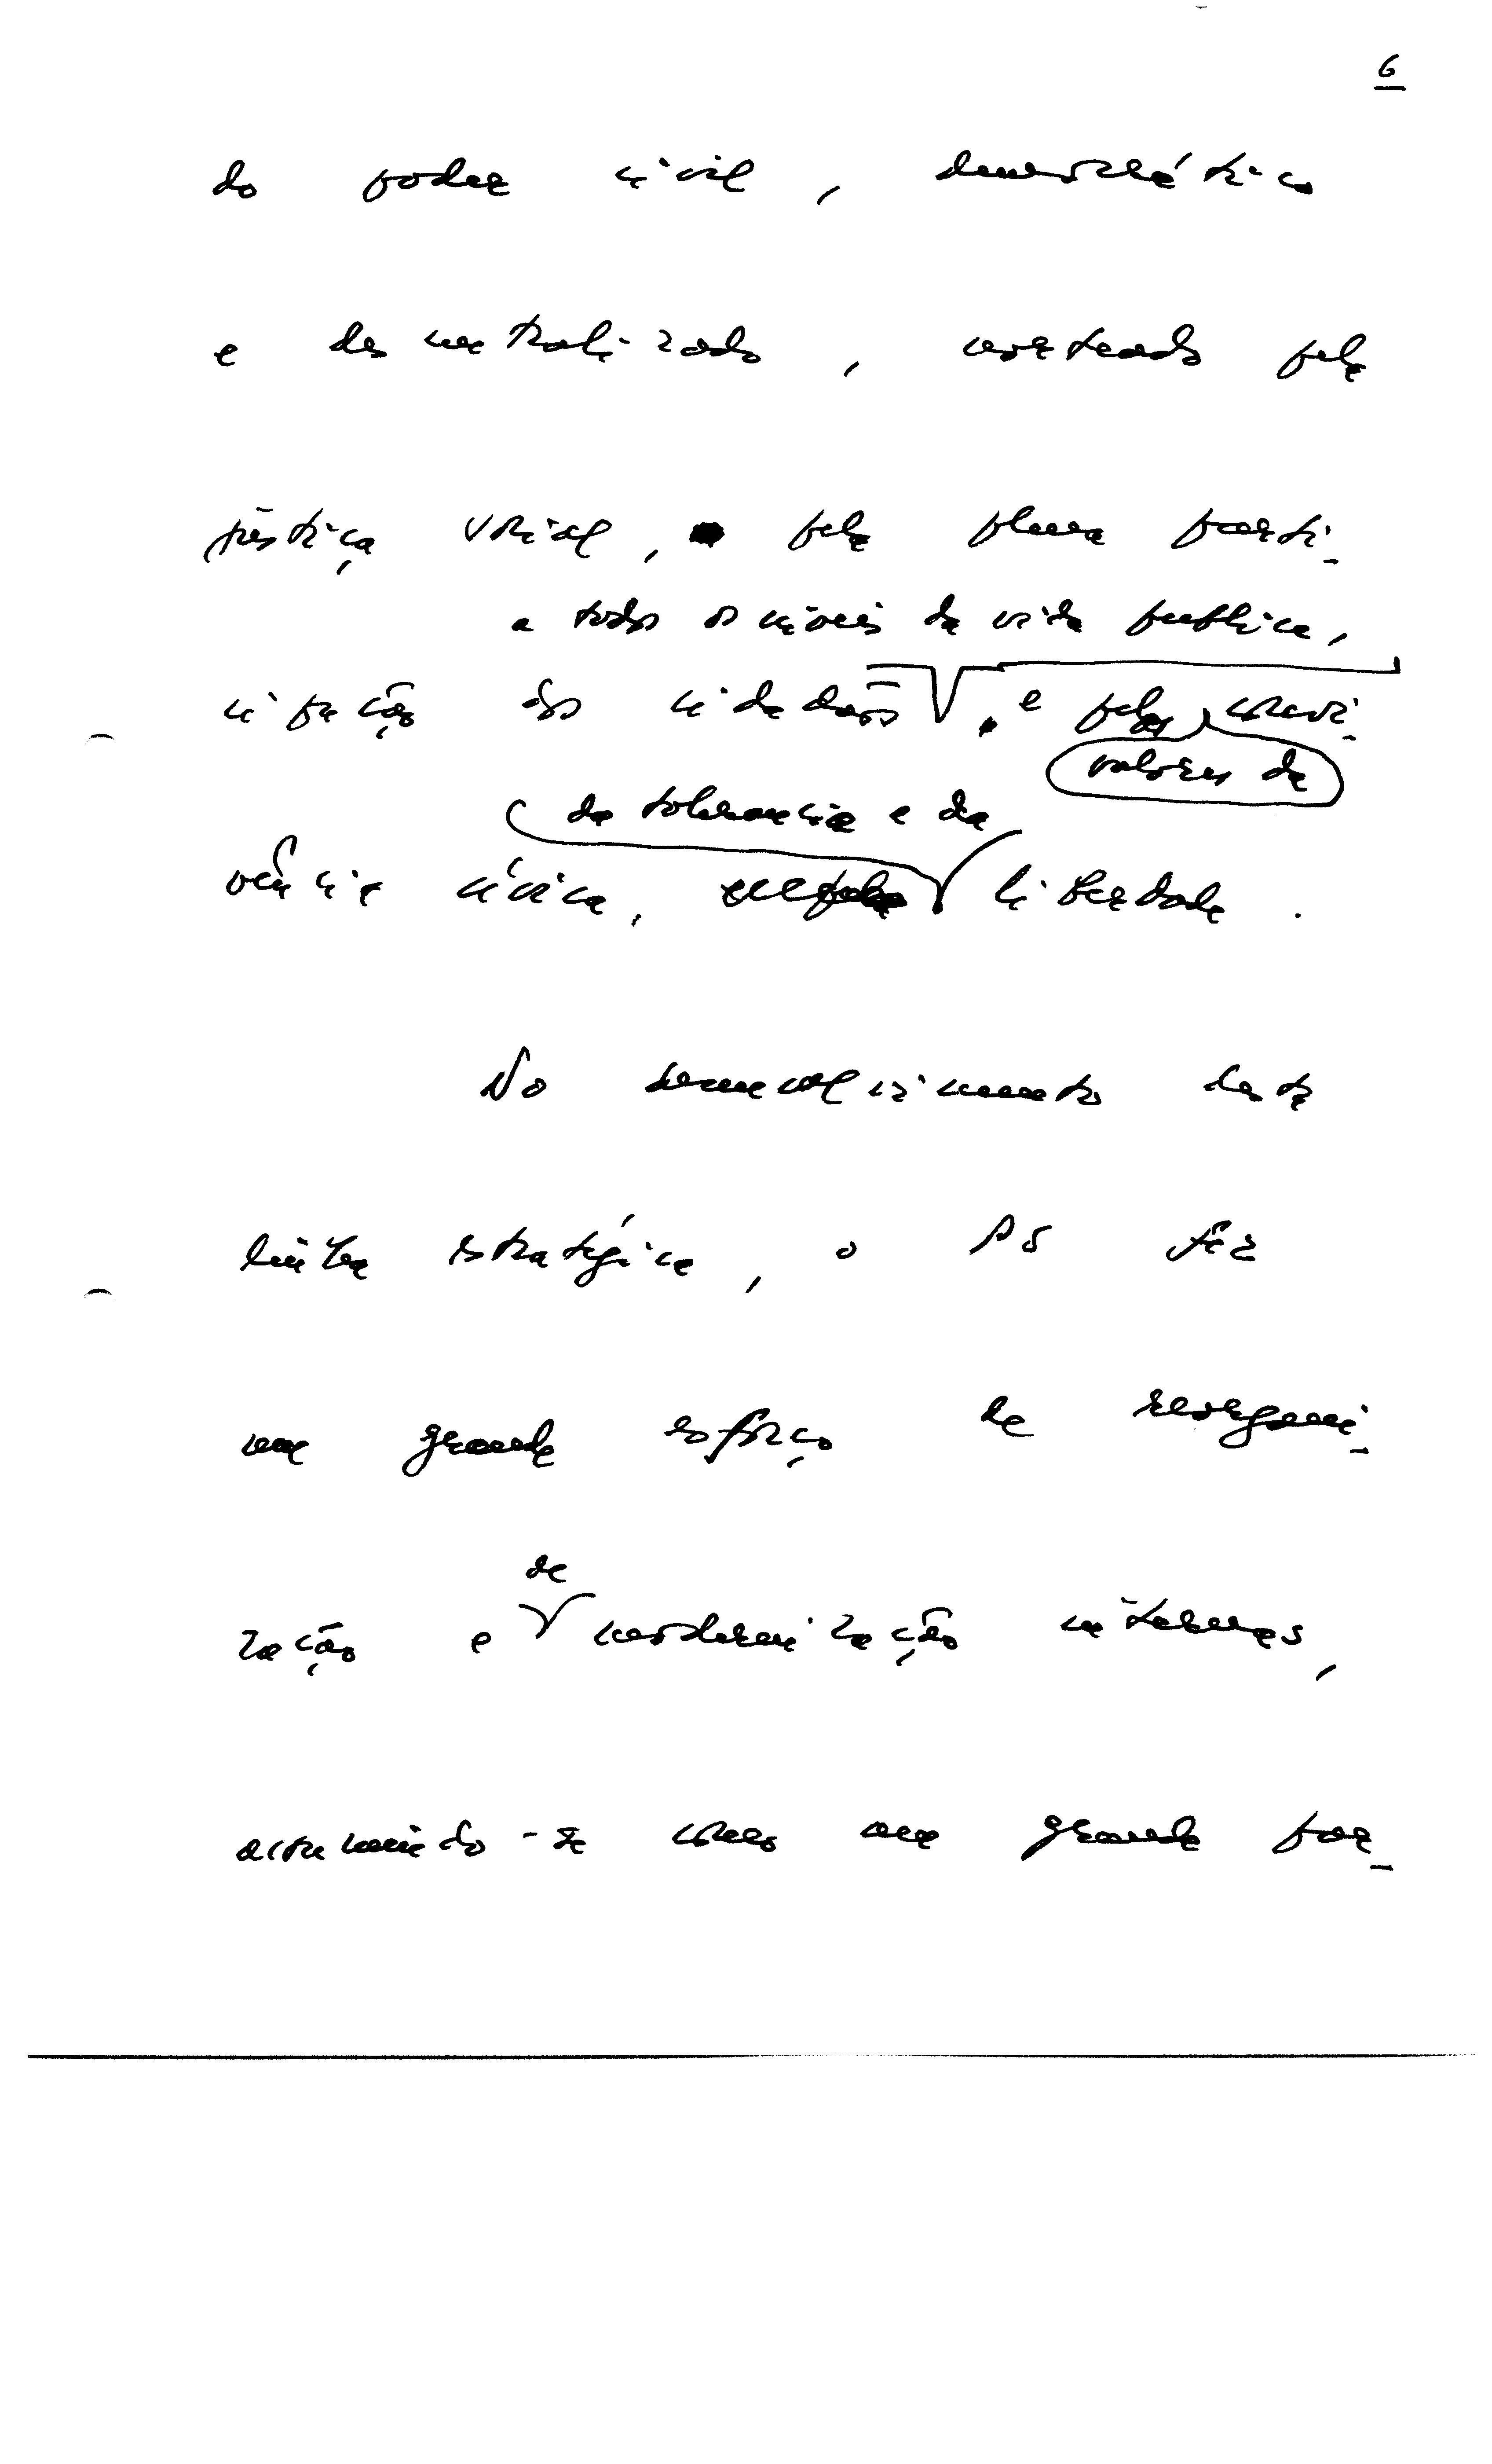 6
do poder civil, democrático
e descentralizado, norteado pela
justiça social, pela plena parti-
a todos os níveis da vida pública,
cipação dos cidadãos, e pelos convi-
valores da
da tolerância e da
vência cívica, liberdade.
No desenvolvimento desta
linha estratégica, o PS fez
um grande esforço de reorgani-
de
zação e modernização internas,
assumindo-se como um grande par-